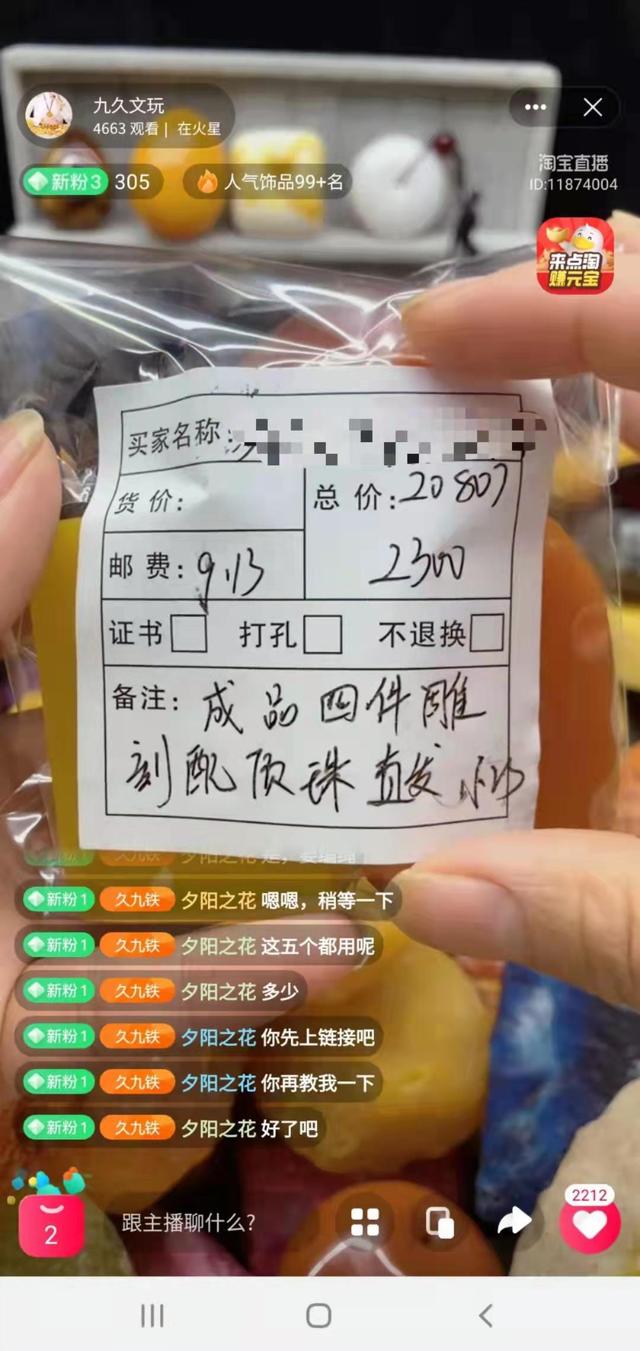 九久文玩
4663 观看 | 在火星
新粉3 305
人气饰品99+名
淘宝直播
ID:11874004
来点淘
赚元宝
买家名称:
货价:
总价:20807
2300
邮费:9.13
证书 打孔 不退换
备注: 成品四件雕
刻配顶珠直发
新粉1 久九铁 夕阳之花 嗯嗯，稍等一下
新粉1 久九铁 夕阳之花 这五个都用呢
新粉1 久九铁 夕阳之花 多少
新粉1 久九铁 夕阳之花 你先上链接吧
新粉1 久九铁 夕阳之花 你再教我一下
新粉1 久九铁 夕阳之花 好了吧
2
跟主播聊什么?
2212